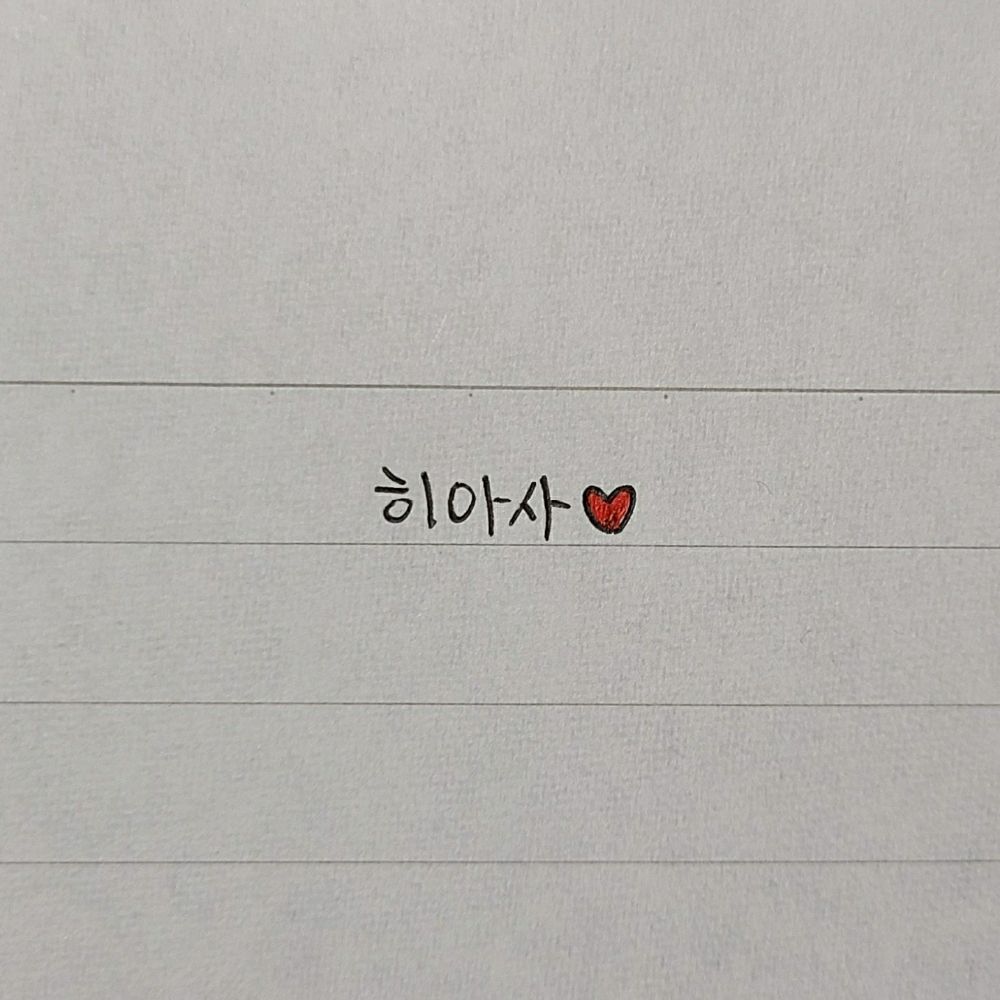 히아사♥